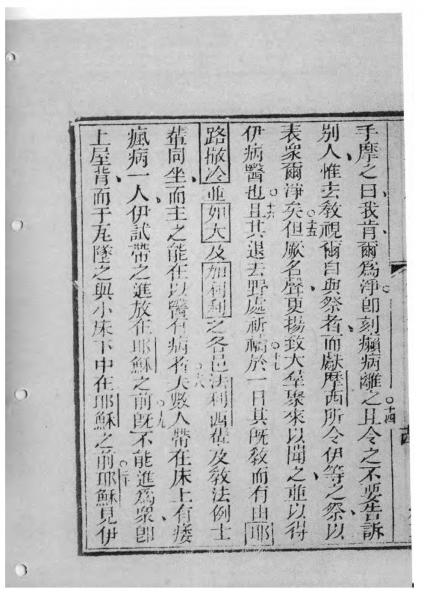 手摩之曰我肯爾爲淨卽刻癩病離之○十四且令之不要告訴
別人惟去敎視爾自與祭者而獻摩西所令伊等之祭以
表衆爾淨矣○十五但厥名聲更揚致大羣聚來以聞之並以得
伊病醫也○十六且其退去野處祈禱○十七於一日其旣敎而有由耶
路撒冷並如大及加利利之各邑𠵽利西輩及敎法例士
輩同坐而主之能在以醫有病者○十八夫數人帶在床上有痿
瘋病一人伊試帶之進放在耶穌之前○十九旣不能進爲衆卽
上屋背而于瓦墜之與小床下中在耶穌之前○二十耶穌見伊